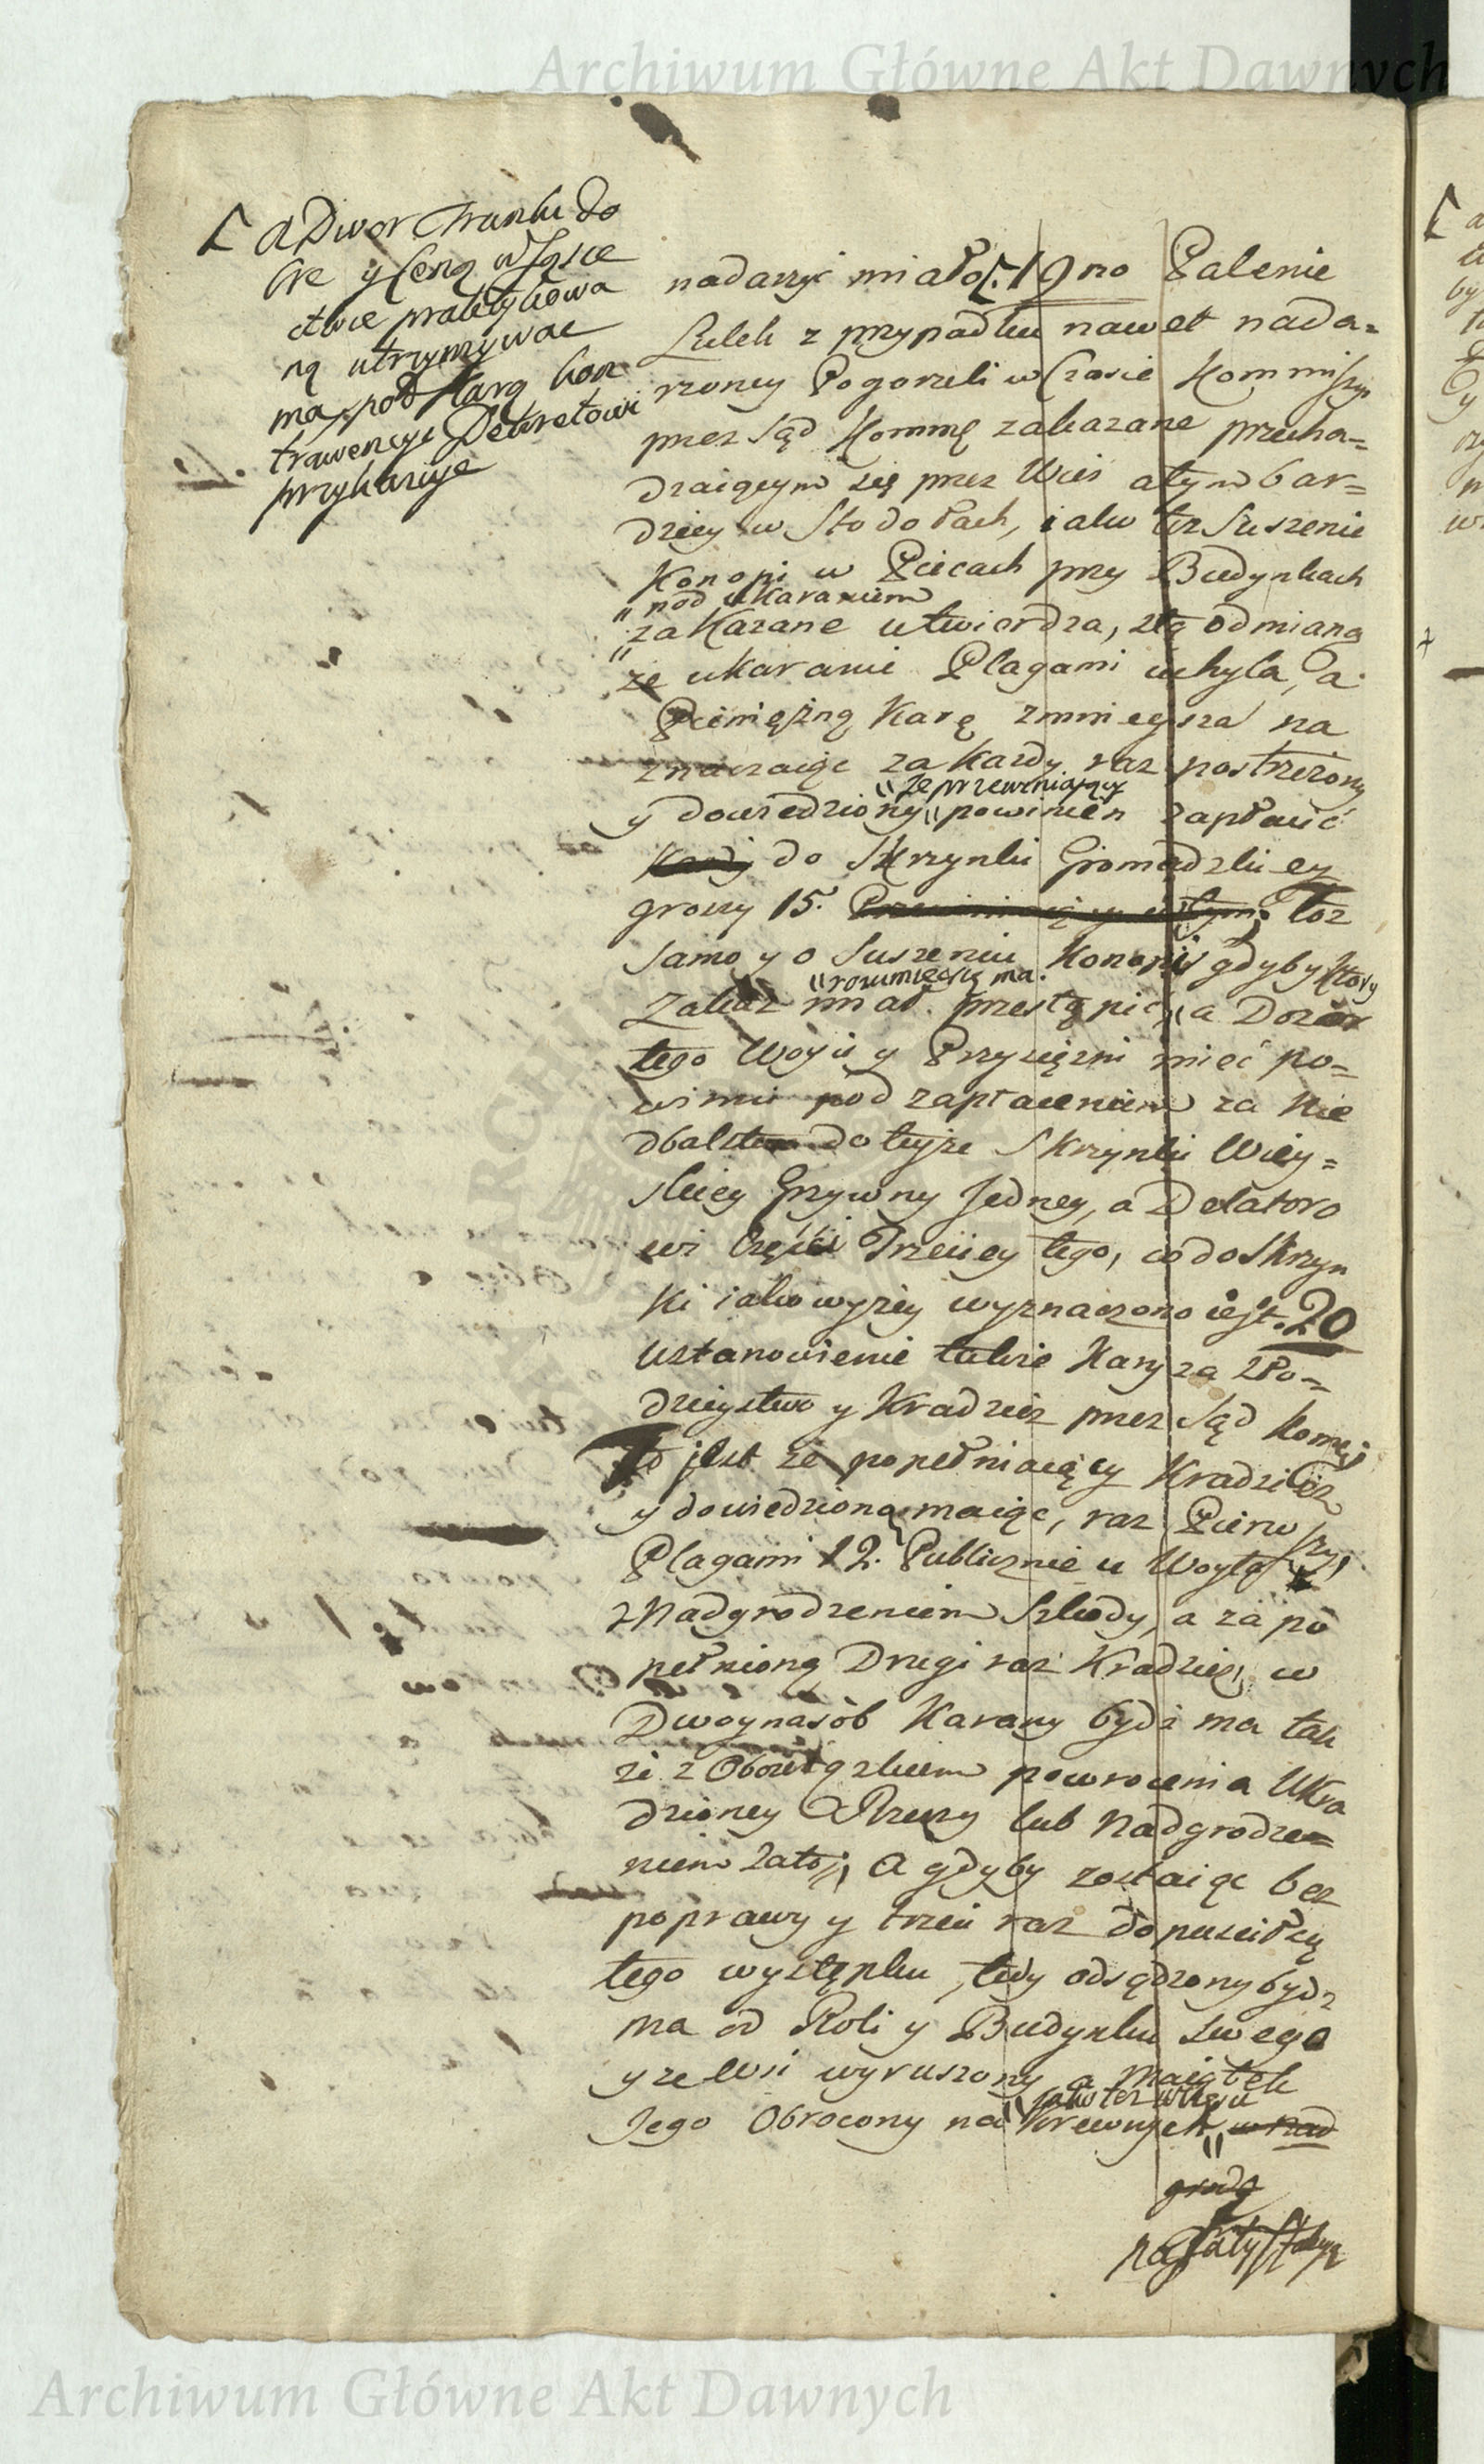 Archiwum Główne Akt Dawnych
[ A Dwor Trunki do
bre y Ceną w Sąsie
ctwie praktykowa
ną utrzymywac
ma, pod Karą kon
trawencyi Dekretowi
przykazuie
nadarzyć miało [. 19no Palenie
Lulek z przypadku nawet nada=
rzoney Pogorzeli w Czasie Kommissyi
przez Sąd Kommę zakazane przecha=
dzaiącym się przez Wieś a tym bar=
dziey w Stodołach, iako tez Suszenie
Konopi w Piecach przy Budynkach
" pod ukaraniem
zakazane utwierdza, z tą odmianą
" że ukaranie Plagami uchyla, a
Pieniężną Karę zmnieysza na
znaczaiąc za każdy raz postrzeżony
" że przewiniaiący
y dowiedziony " powinien zapłacić
do Skrzynki Gromadzkiey
groszy 15. toż
samo y o Suszeniu Konopi gdyby ktory
" rozumieć się ma.
Zakaz miał przestąpić, " a Dozor
tego Woyt y Przysięzni mieć po=
winni pod zapłaceniem za Nie
dbalstwo do teyże Skrzynki Wiey=
skiey Grzywny Jedney, a Delatoro
wi Części Trzeciey tego, co do Skrzyn
ki iako wyżey wyznaczono iest. 20
Ustanowienie także Kary za Zło=
dzieystwo y Kradzież przez Sąd Kommi
To jest że popełniaiący Kradzież
y dowiedzioną maiąc, raz Pierwszy,
Plagami 12. Publicznie u Woyta
z Nadgrodzeniem Szkody, a za po
pełnioną Drugi raz Kradzież, w
Dwoynasób Karany bydź ma tak
że z Obowiązkiem powrocenia Ukra
dzioney Rzeczy lub Nadgrodze=
niem za toż, A gdyby zostaiąc bez
poprawy y trzeci raz dopuścił się
tego występku, tedy odsądzony bydź
ma od Roli y Budynku swego
y ze Wsi wyruszony, a Maiątek
iako tez
Jego Obrocony na " Krewnych " w nad
grodę
na Satysfakcyą
Archiwum Główne Akt Dawnych